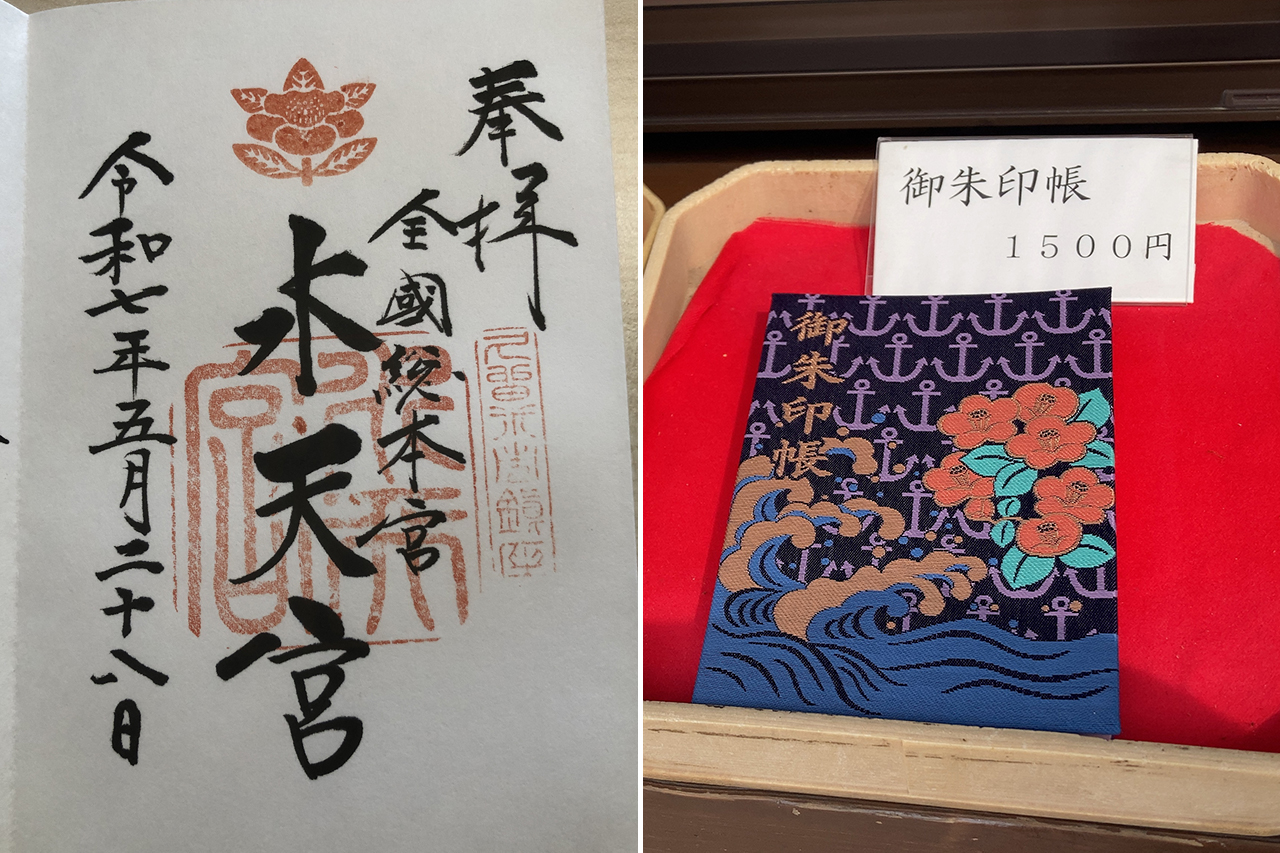 奉拝
全國総本宮
水天宮
令和七年五月二十八日
御朱印帳
1500円
御朱印帳